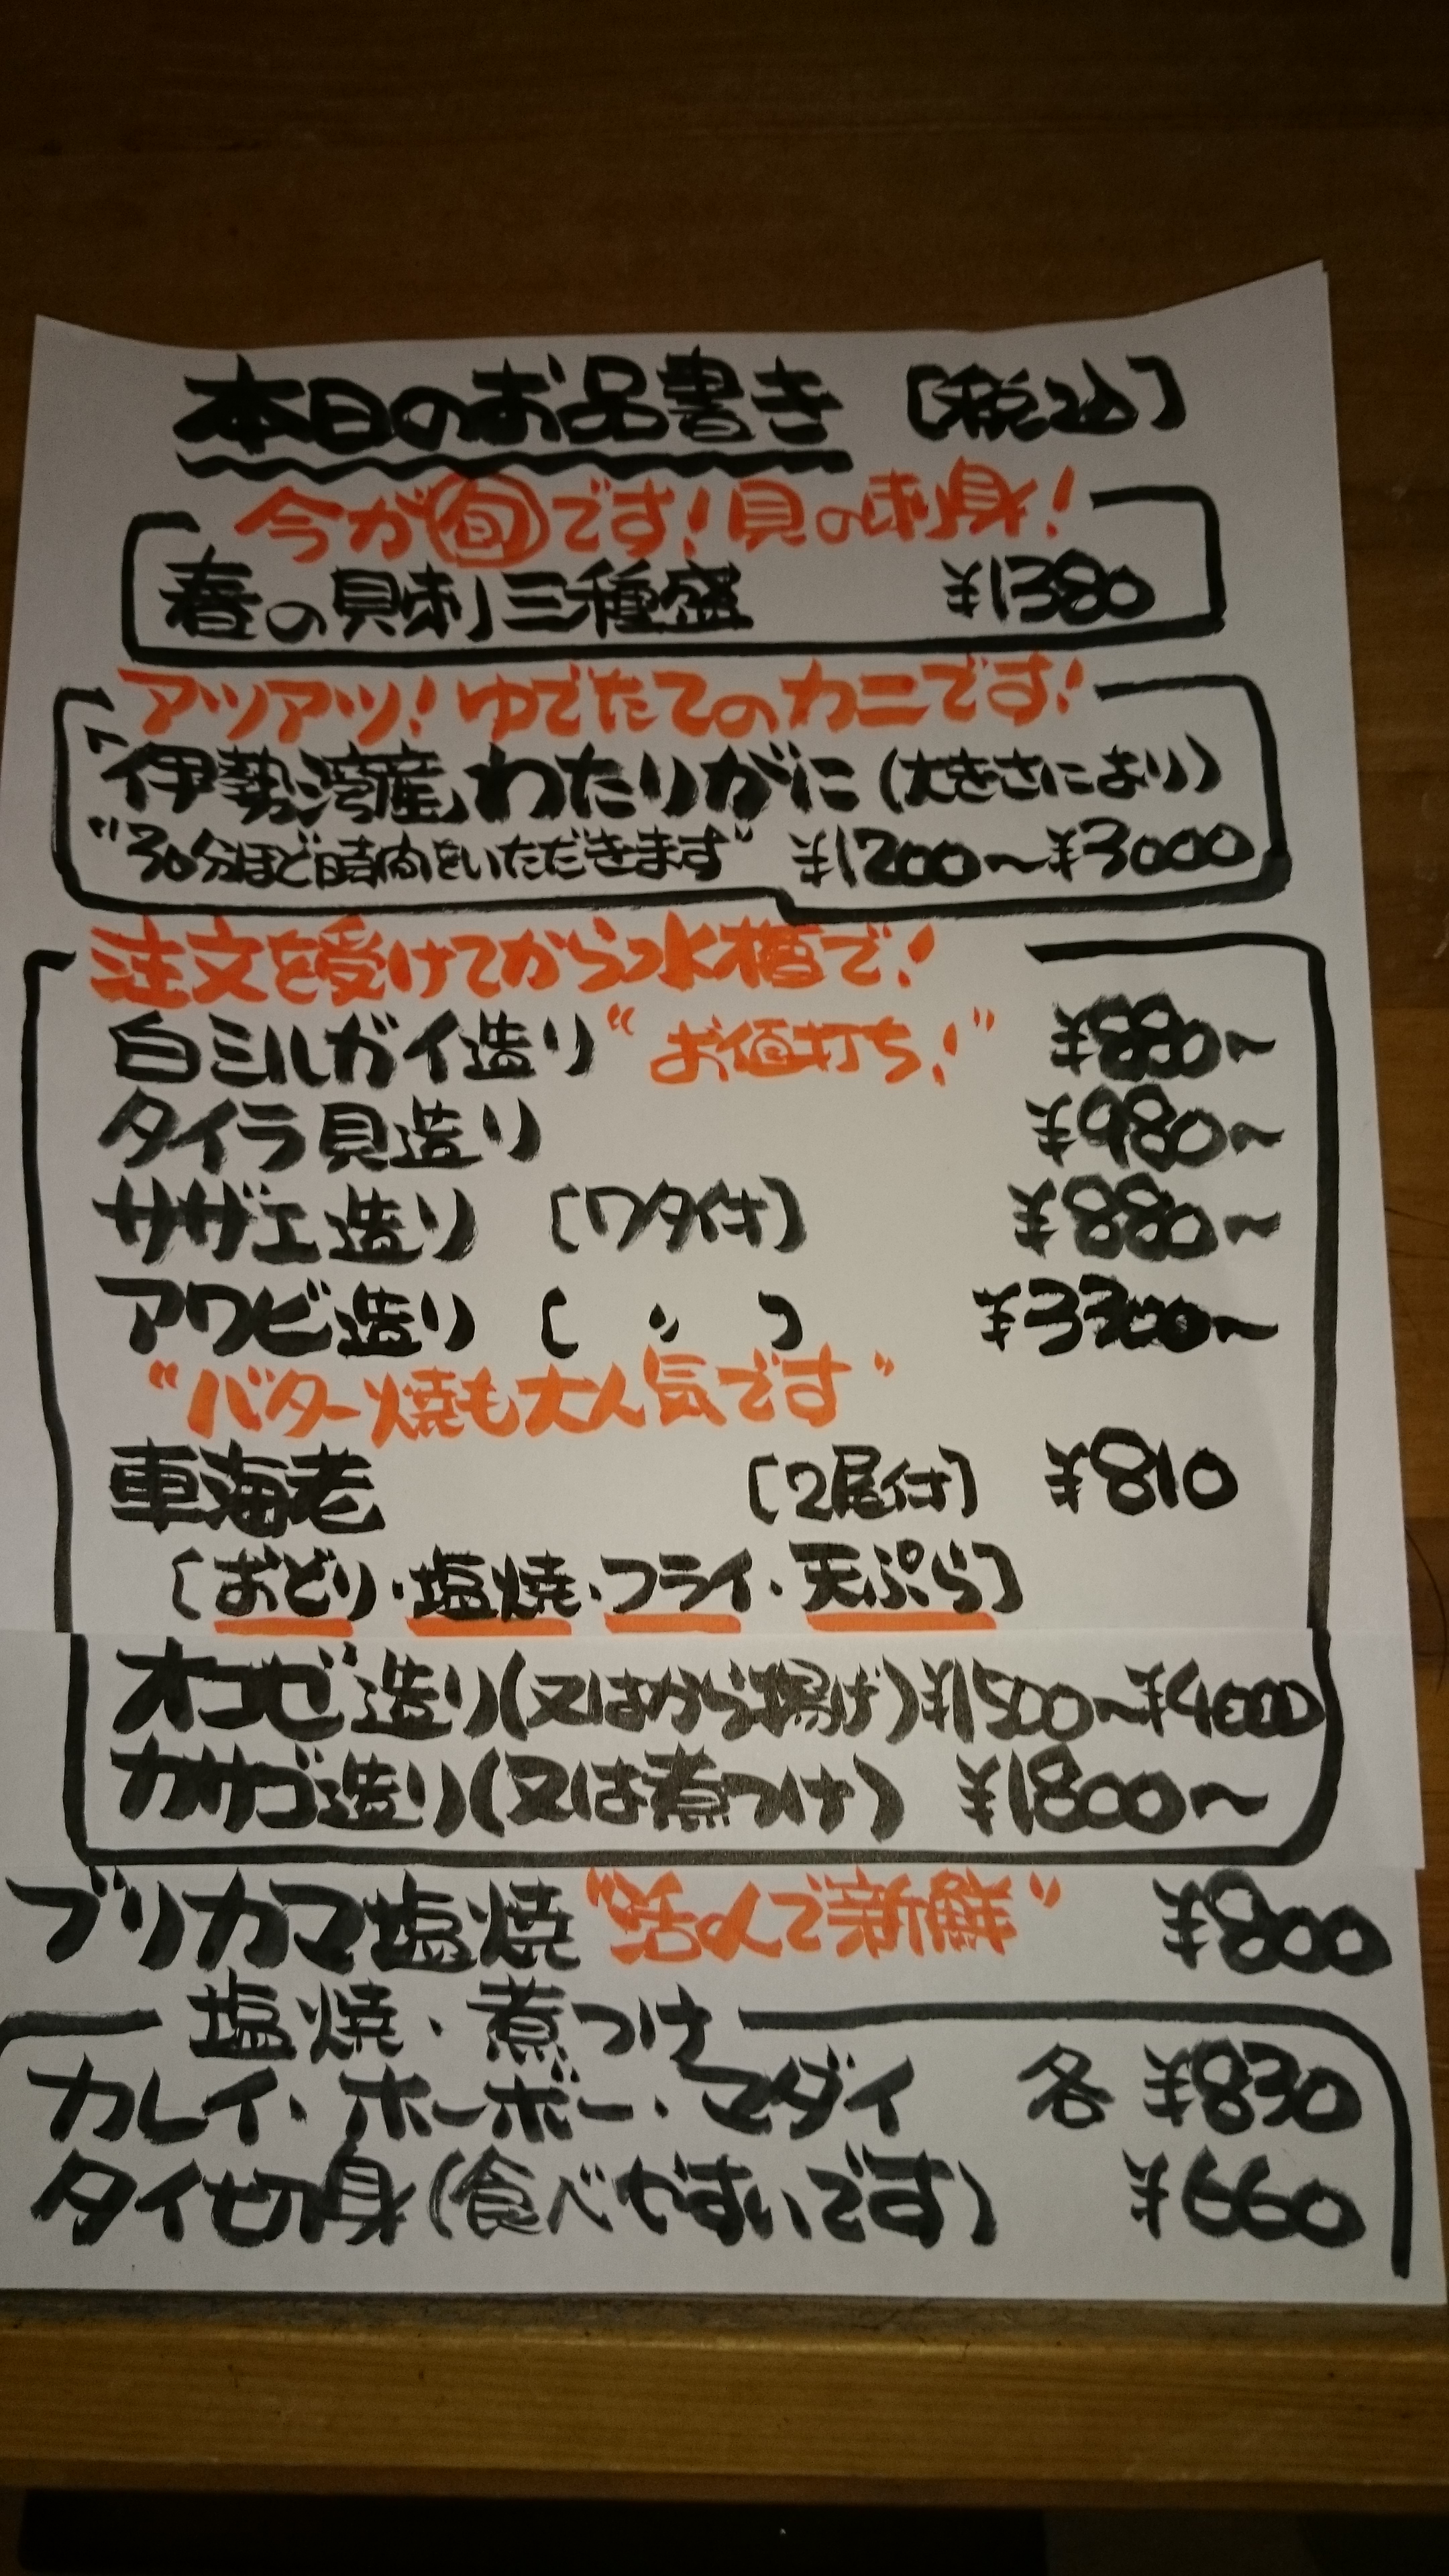 本日のお品書き [税込]
今が旬です!貝の刺身!
春の貝刺三種盛 ¥1380
アツアツ!ゆでたてのカニです!
伊勢湾産わたりがに(大きさにより)
"30分ほど時間をいただきます" ¥1200〜¥3000
注文を受けてから水槽で!
白ミルガイ造り"お値打ち!" ¥880〜
タイラ貝造り ¥680〜
サザエ造り [ワタ付] ¥880〜
アワビ造り [ 〃 ] ¥3300〜
"バター焼も大人気です"
車海老 [2尾付] ¥810
[おどり・塩焼・フライ・天ぷら]
オコゼ造り(又はから揚げ)¥1500〜¥4000
カサゴ造り(又は煮つけ) ¥1800〜
ブリカマ塩焼 "活〆で新鮮" ¥800
塩焼・煮つけ
カレイ・ホーボー・マダイ 各 ¥830
タイ切身(食べやすいです) ¥660